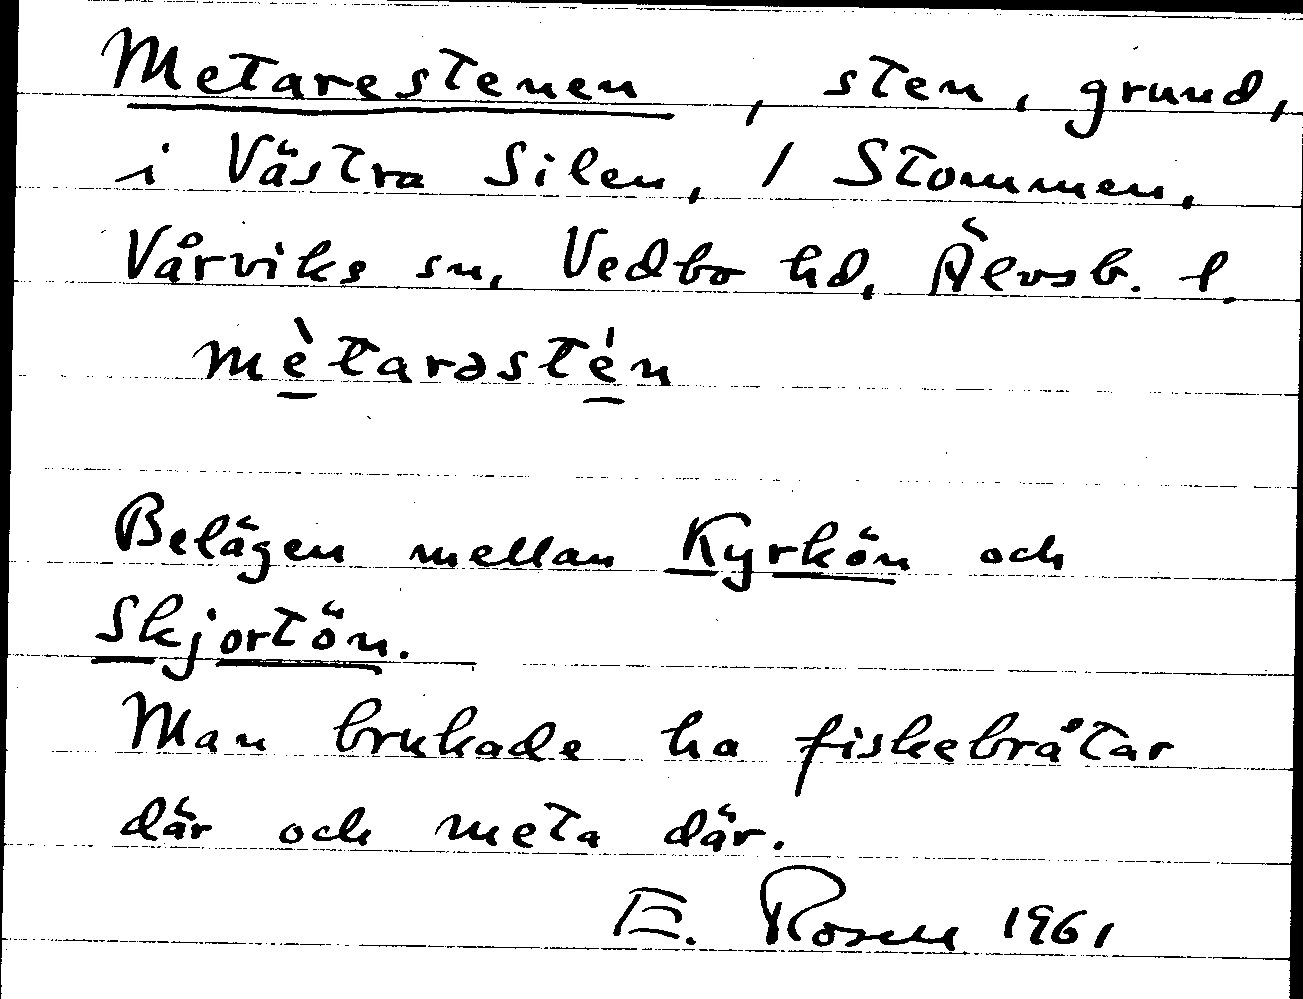 Metarestenen, sten, grund,
i Västra Silen, / Stommen,
Vårviks sn, Vedbo hd, Älvsb. l.
mètarəstén
Belägen mellan Kyrkön och
Skjortön.
Man brukade ha fiskebråtar
där och meta där.
E. Rosell 1961